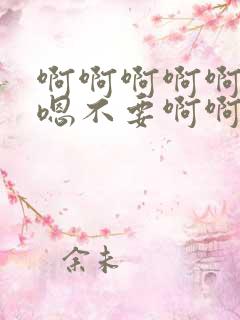 啊啊啊啊啊
嗯不要啊啊
余未